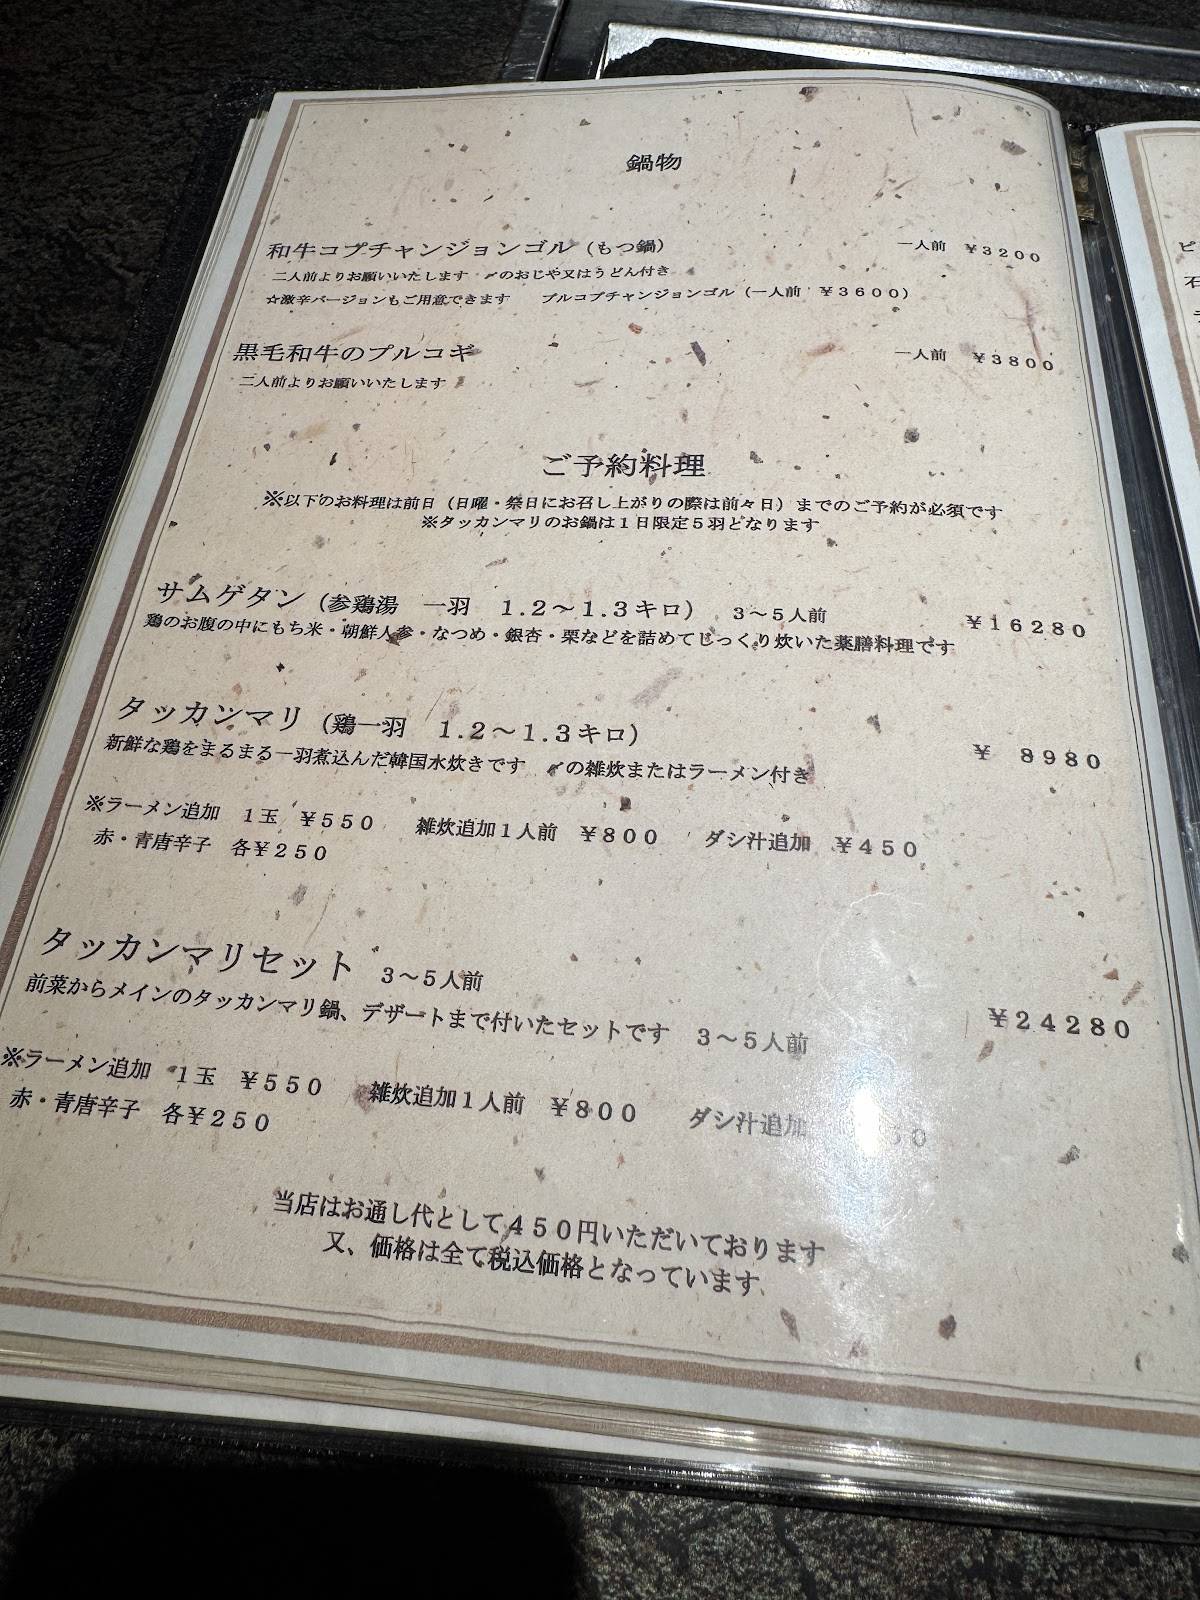 鍋物
和牛コプチャンジョンゴル（もつ鍋） 一人前 ￥3200
二人前よりお願いいたします 〆のおじや又はうどん付き
☆激辛バージョンもご用意できます プルコプチャンジョンゴル（一人前 ￥3600）
黒毛和牛のプルコギ 一人前 ￥3800
二人前よりお願いいたします
ご予約料理
※以下のお料理は前日（日曜・祭日にお召し上がりの際は前々日）までのご予約が必須です
※タッカンマリのお鍋は１日限定５羽となります
サムゲタン（参鶏湯 一羽 １.２～１.３キロ） ３～５人前 ￥16280
鶏のお腹の中にもち米・朝鮮人参・なつめ・銀杏・栗などを詰めてじっくり炊いた薬膳料理です
タッカンマリ（鶏一羽 １.２～１.３キロ） ￥ 8980
新鮮な鶏をまるまる一羽煮込んだ韓国水炊きです 〆の雑炊またはラーメン付き
※ラーメン追加 １玉 ￥550 雑炊追加１人前 ￥800 ダシ汁追加 ￥450
赤・青唐辛子 各￥250
タッカンマリセット ３～５人前
前菜からメインのタッカンマリ鍋、デザートまで付いたセットです ３～５人前 ￥24280
※ラーメン追加 １玉 ￥550 雑炊追加１人前 ￥800 ダシ汁追加 50
赤・青唐辛子 各￥250
当店はお通し代として４５０円いただいております
又、価格は全て税込価格となっています.
ピ
石